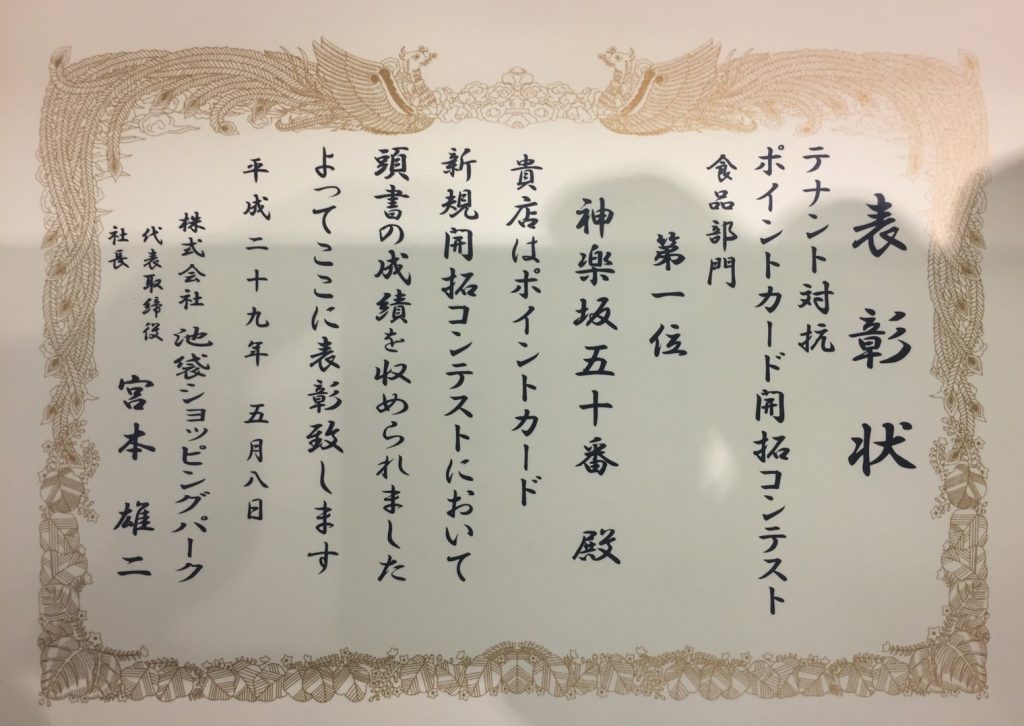 表彰状
テナント対抗
ポイントカード開拓コンテスト
食品部門
第一位
神楽坂五十番 殿
貴店はポイントカード
新規開拓コンテストにおいて
頭書の成績を収められました
よってここに表彰致します
平成二十九年 五月八日
株式会社 池袋ショッピングパーク
代表取締役
社長 宮本 雄二